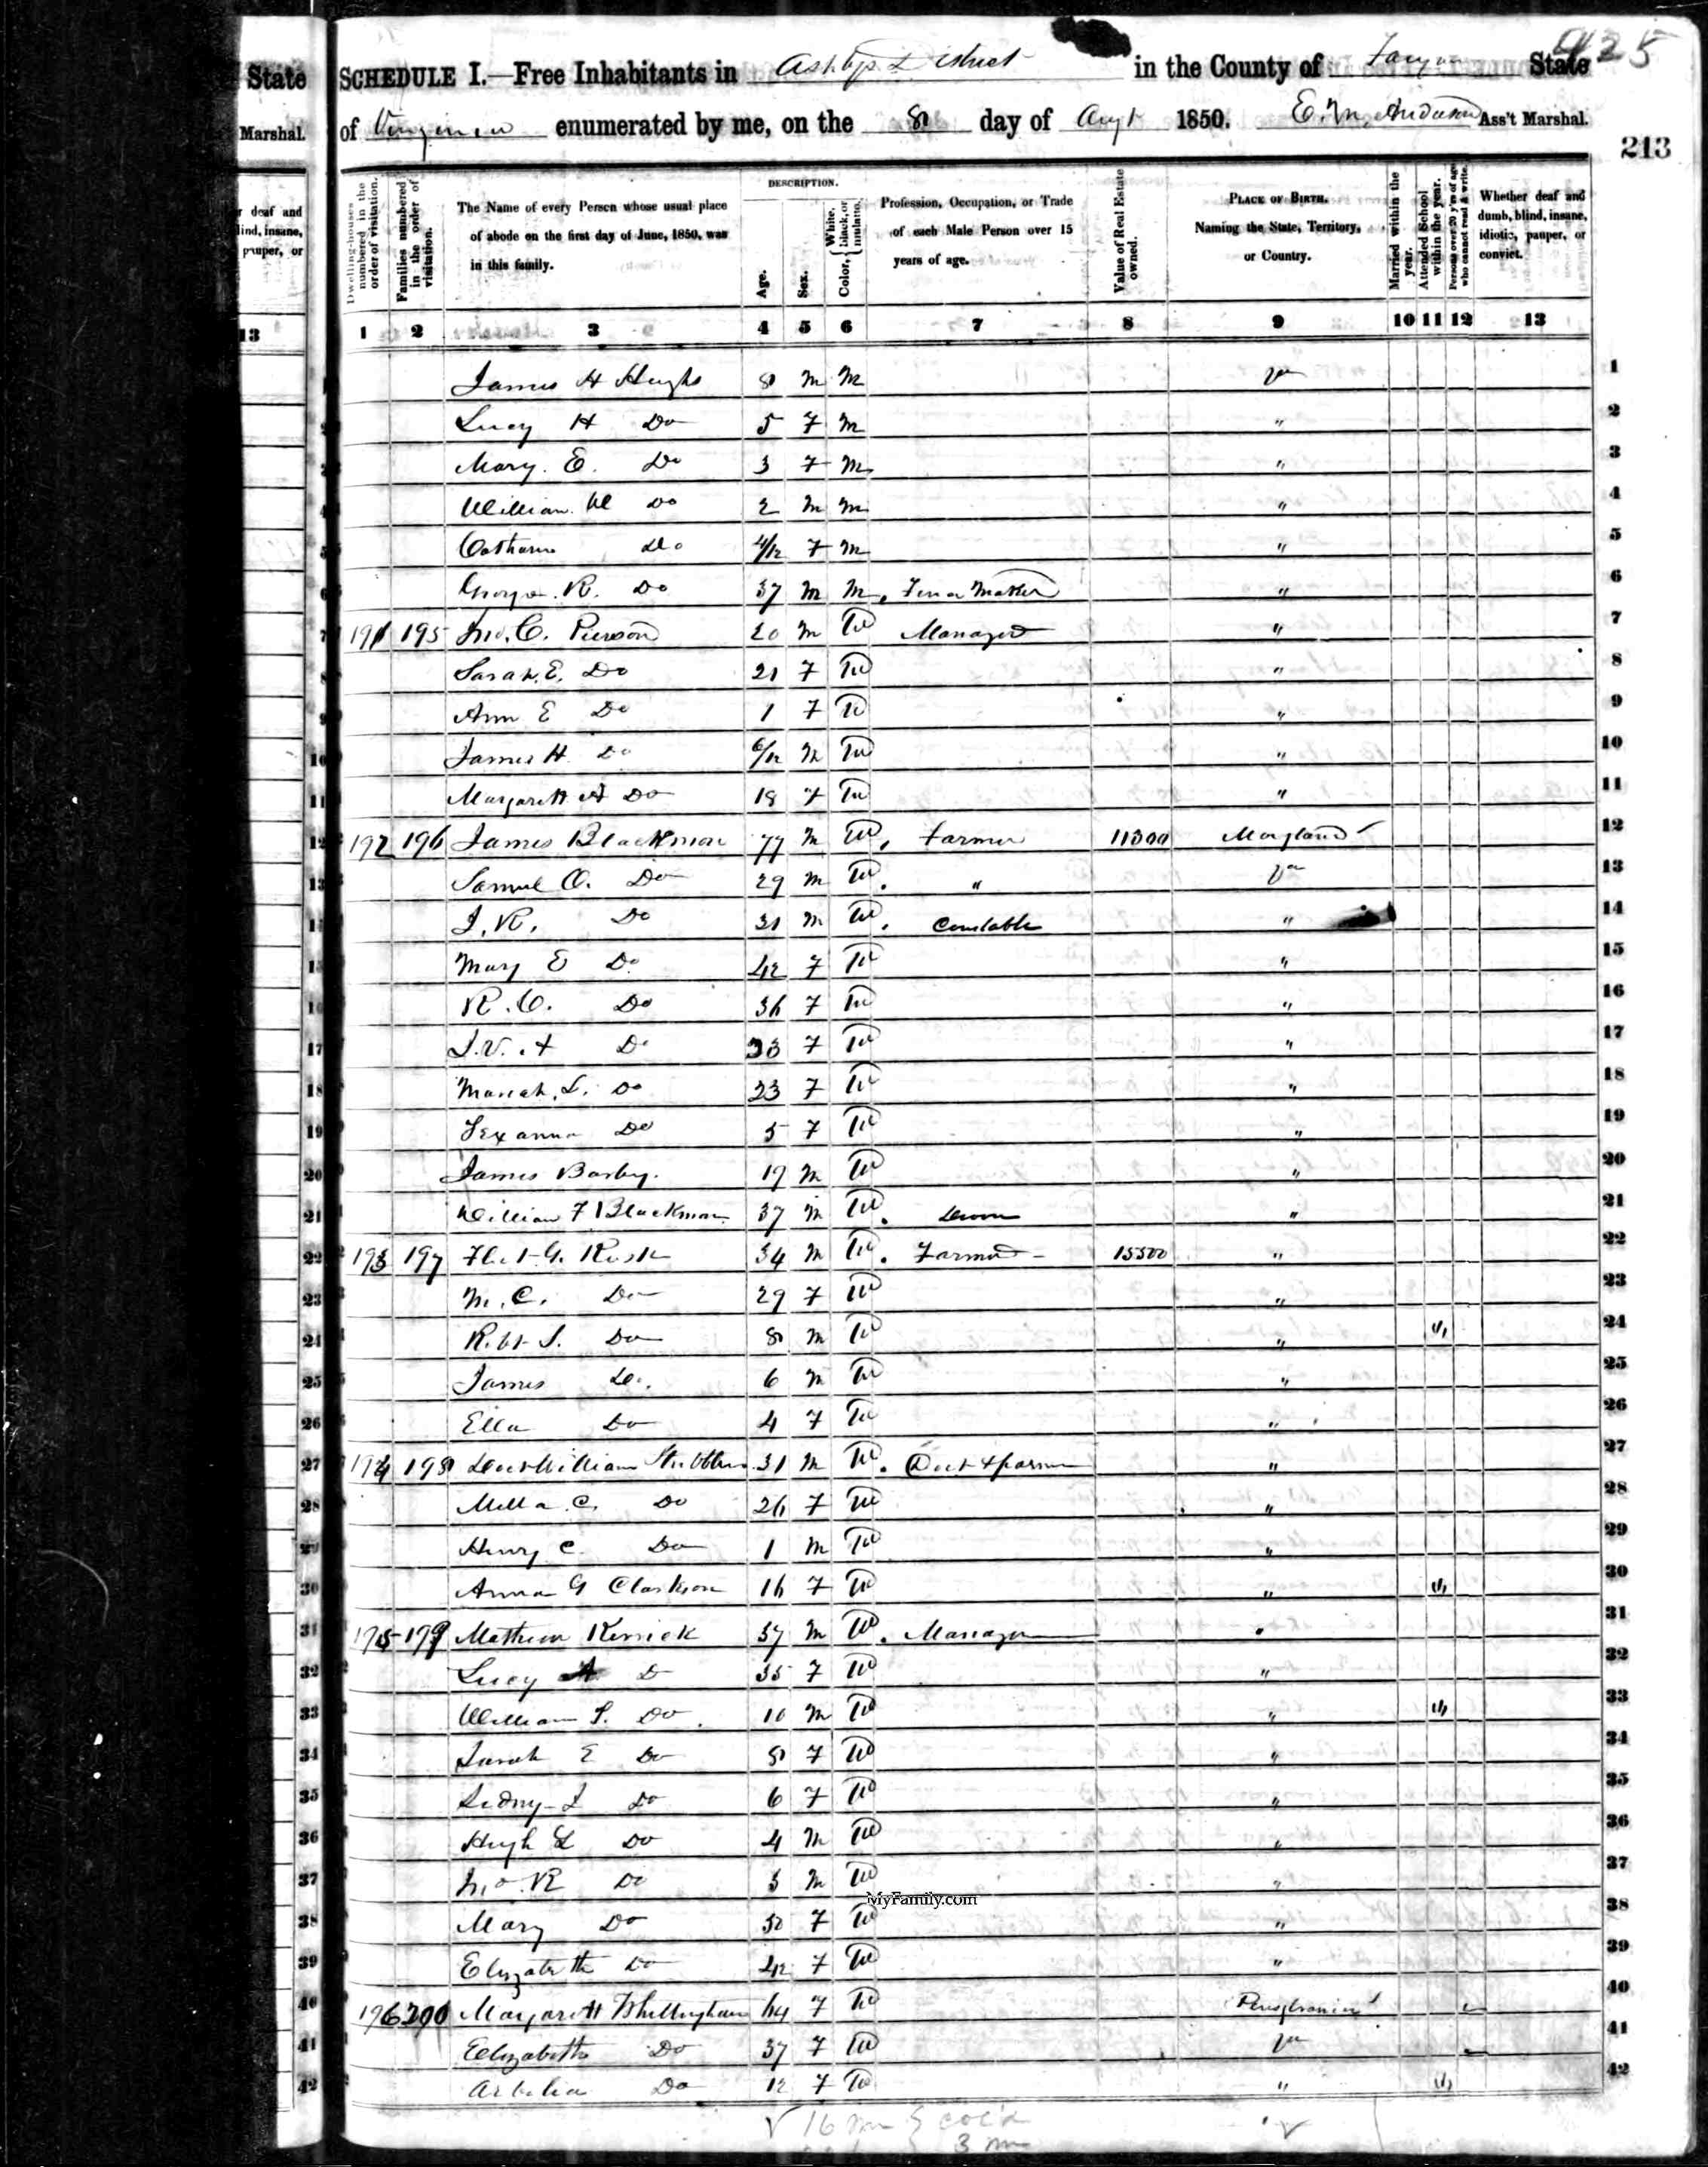 State
Marshal.
425
SCHEDULE I.—Free Inhabitants in Ashbys District in the County of State
of Virginia enumerated by me, on the 8 day of Augt 1850. Ass't Marshal.
213
Dwelling-houses numbered in the order of visitation.
Families numbered in the order of visitation.
The Name of every Person whose usual place of abode on the first day of June, 1850, was in this family.
DESCRIPTION.
Age.
Sex.
Color, White, black, or mulatto.
Profession, Occupation, or Trade of each Male Person over 15 years of age.
Value of Real Estate owned.
PLACE OF BIRTH. Naming the State, Territory, or Country.
Married within the year.
Attended School within the year.
Persons over 20 y'rs of age who cannot read & write.
Whether deaf and dumb, blind, insane, idiotic, pauper, or convict.
1 2 3 4 5 6 7 8 9 10 11 12 13
James H Hughs 8 M M Va 1
Lucy H Do 5 F M " 2
Mary. E. Do 3 F M " 3
William W Do 2 M M " 4
Do 4/12 F M " 5
George. R. Do 37 M M " 6
191 195 Jno. C. Pierson 20 M W Manager " 7
Sarah. E. Do 21 F W " 8
Ann E Do 1 F W " 9
James H Do 6/12 M W " 10
Margarett A Do 18 F W " 11
192 196 James Blackmon 77 M W Farmer 11300 Maryland 12
Samuel O. Do 29 M W " Va 13
J. R. Do 31 M W Constable " 14
Mary E Do 42 F W " 15
R. C. Do 36 F W " 16
Do 33 F W " 17
Mariah. L. Do 23 F W " 18
Texanna Do 5 F W " 19
James Barby. 17 M W " 20
William F Blackmon 37 M W " 21
193 197 34 M W Farmer 15500 " 22
M. C. Do 29 F W " 23
Robt S. Do 8 M W 24
James Do. 6 M W " 25
Ella Do 4 F W " 26
194 198 Doct William 31 M W Doct & farmer " 27
C. Do 26 F W " 28
Henry C. Do 1 M W " 29
Anna G Clarkson 16 F W " 30
195 199 Mathew Kerrick 37 M W Manager " 31
Lucy A D 35 F W " 32
William S. Do 10 M W " 33
Sarah E Do 8 F W " 34
Sidny Do 6 F W " 35
Hugh L Do 4 M W " 36
Jno. R Do 3 M W " 37
MyFamily.com
Mary Do 50 F W " 38
Elizabeth Do 42 F W " 39
196 200 Margarett 64 F W Pensylvania 40
Elizabeth Do 37 F W Va 41
Arbelia Do 12 F W " 42
16 m col'd
3 m